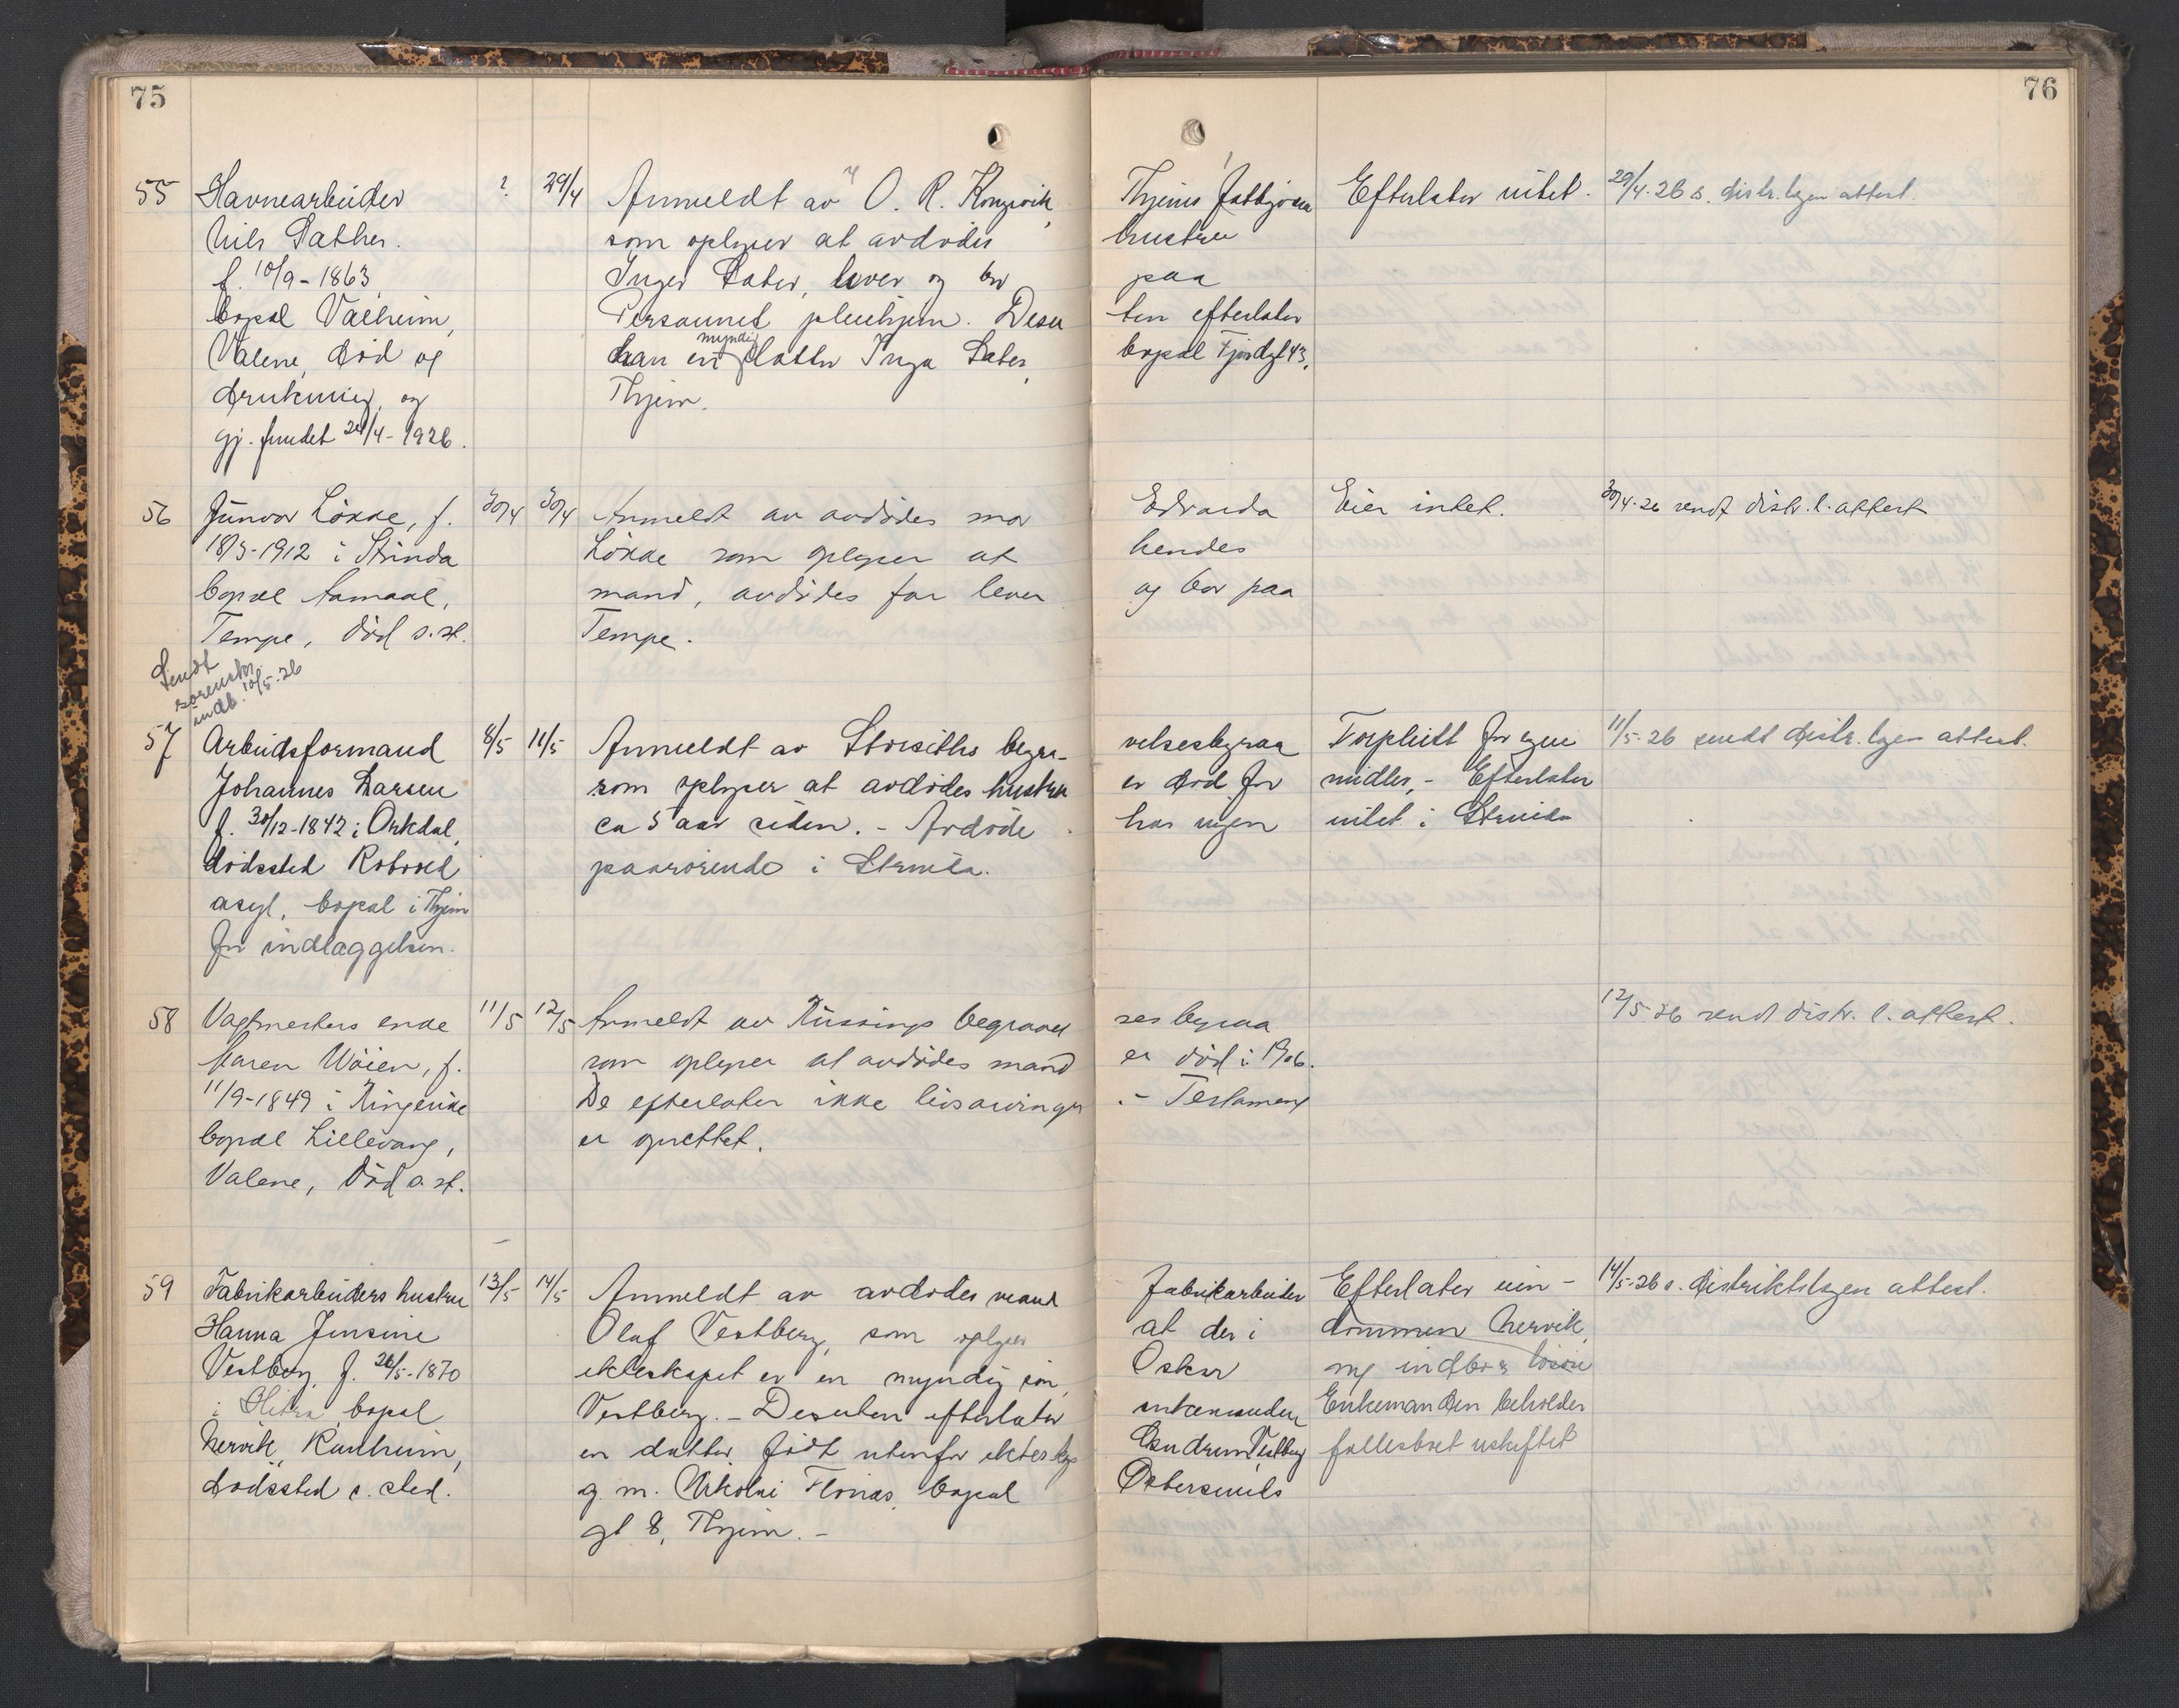 75
76
55 Havnearbeider ? 29/4 Anmeldt av O. R. Thjems hustru Efterlater intet. 29/4-26 s. distr.lægen attest.
Nils Sather. som oplyser at avdødes hustru
f. 10/9-1863, Inger Sater, lever og bor paa
bopæl Valheim, pleiehjem. Desu ten efterlater
Valene, død og han en myndig datter Inga Sater, bopæl Fjordgt 43,
drukning, og Thjem.
gj. fundet 24/4-1926.
56 Gunvor Løkke, f. 30/4 30/4 Anmeldt av avdødes mor Edvarda Eier intet. 30/4-26 sendt distr.l. attest
18/3-1912 i Strinda Løkke som oplyser at hendes
bopæl mand, avdødes far lever og bor paa
Tempe, død s.st. Tempe.
Sendt
sorenskr.
indb. 10/5-26
57 Arbeidsformand 8/5 11/5 Anmeldt av begra- velsesbyraa Forpleiet for egne 11/5-26 sendt distr.lægen attest.
Johannes Larsen som oplyser at avdødes hustru er død for midler, - Efterlater
f. 30/12-1842 i Orkdal, ca 5 aar siden. - Avdøde har ingen intet i Strinda
dødssted Rotvoll paarørende i Strinda.
asyl, bopæl i Thjem
før indlæggelsen.
58 Vagtmesters enke 11/5 12/5 Anmeldt av Russings begravel sesbyraa 12/5-26 sendt distr. l. attest.
Karen Wøien, f. som oplyser at avdødes mand er død i 1906.
11/9-1849 i Ringerike De efterlater ikke livsarvinger .- Testament
bopæl Lillevang, er oprettet.
Valene, død s.st.
59 Fabrikarbeiders hustru 13/5 14/5 Anmeldt av avdødes mand fabrikarbeider Efterlater ein- 14/5-26 s. distriktslægen attest.
Hanna Jensine Olaf Vestberg, som oplyser at der i dommen Nervik,
Vestberg, f. 26/5-1870 ekteskapet er en myndig søn, Oskar og indbo & løsøre
i Hitra, bopæl Vestberg. - Desuten efterlater enkemanden Enkemanden beholder
Nervik, Ranheim, en datter, født utenfor ekteskap Gudrun Vestberg fællesboet uskiftet
dødssted s. sted. g. m. Nikolai bopæl Østersunds
gt 8, Thjem. -